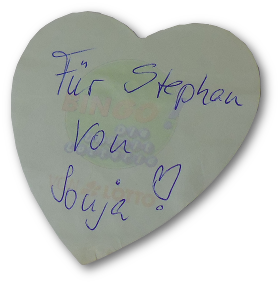 Für Stephan
von
Sonja
LOTTO